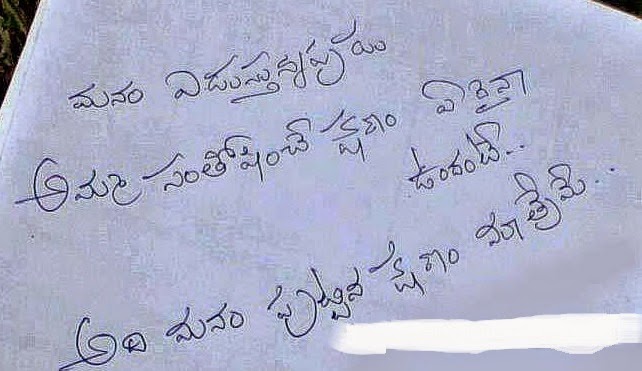 మనం ఏడుస్తున్నప్పుడు
అమ్మ సంతోషించే క్షణం ఏదైనా
ఉందంటే..
అది మనం పుట్టిన క్షణం మాత్రమే..